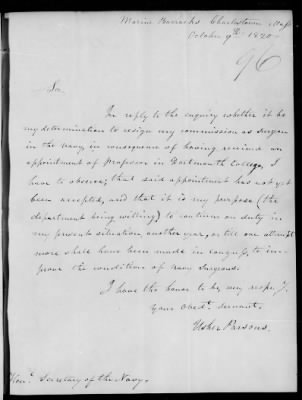 Marine Barracks Charlestown Mass
October 9th 1820
96
Sir
In reply to the enquiry whether it be
my determination to resign my commission as Surgeon
in the navy in consequence of having received an
appointment of Professor in Dartmouth College, I
have to observe; that said appointment has not yet
been accepted, and that it is my purpose (the
department being willing) to continue on duty in
my present situation another year, or till one attempt
more shall have been made in congress, to im-
prove the condition of navy Surgeons.
I have the honor to be, very respy.
Your Obedt. Servant.
Usher Parsons.
Honl. Secretary of the Navy.